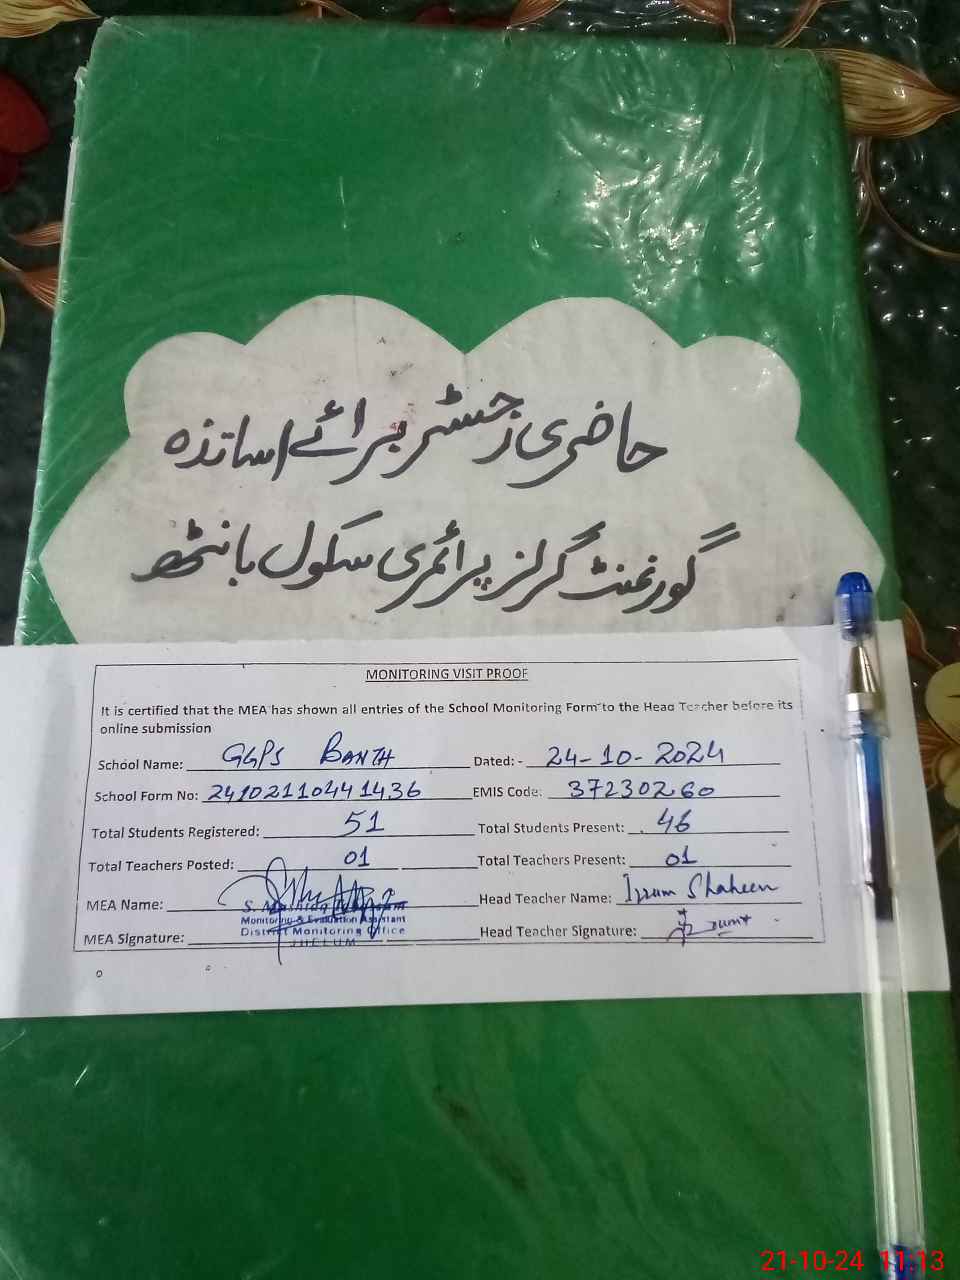 حاضری رجسٹر برائے اساتذہ
گورنمنٹ گرلز پرائمری سکول بانٹھ
MONITORING VISIT PROOF
It is certified that the MEA has shown all entries of the School Monitoring Form to the Head Teacher before its
online submission
School Name: GGPS BANTH Dated: - 24-10-2024
School Form No: 24102110441436 EMIS Code: 37230260
Total Students Registered: 51 Total Students Present: 46
Total Teachers Posted: 01 Total Teachers Present: 01
MEA Name: Head Teacher Name: Irrum Shaheen
S.
Monitoring & Evaluation Assistant
District Monitoring Office
JHELUM
MEA Signature: Head Teacher Signature:
21-10-24 11:13